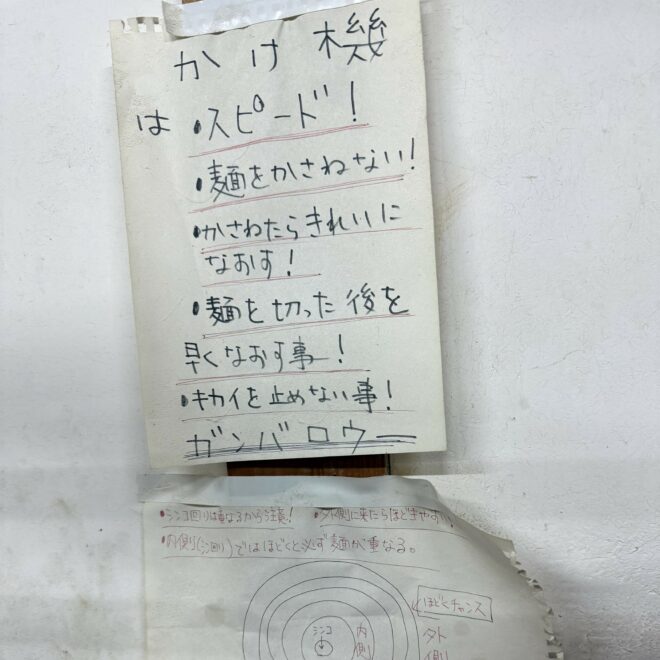 かけ機
は ・スピード!
・麺をかさねない!
・かさねたらきれいに
なおす!
・麺を切った後を
早くなおす事!
・キカイを止めない事!
ガンバロウー
・シンコ回りは重なるから注意! ・外側に来たらほどきやすい!
・内側(シンコ回り)ではほどくと必ず麺が重なる。
ほどくチャンス
シンコ 内側 外側